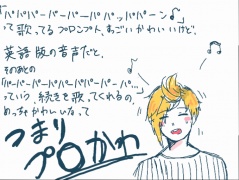 「パパパーパーパーパパッパパーン♪」
って歌ってるプロンプト、すごいかわいいけど、
英語版の音声だと、
そのあとの
「パーパパーパパパパーパパーパ…
っていう続きを歌ってくれるの、
めっちゃかわいいなって
つまり
プロかわ